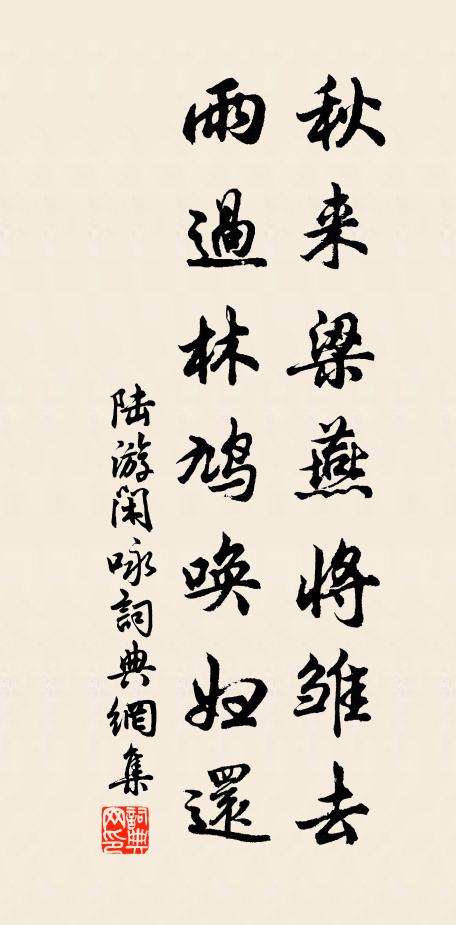 秋来梁燕將雏去
雨過林鸠唤妇還
陆游闲咏詞典網集
詞典网印